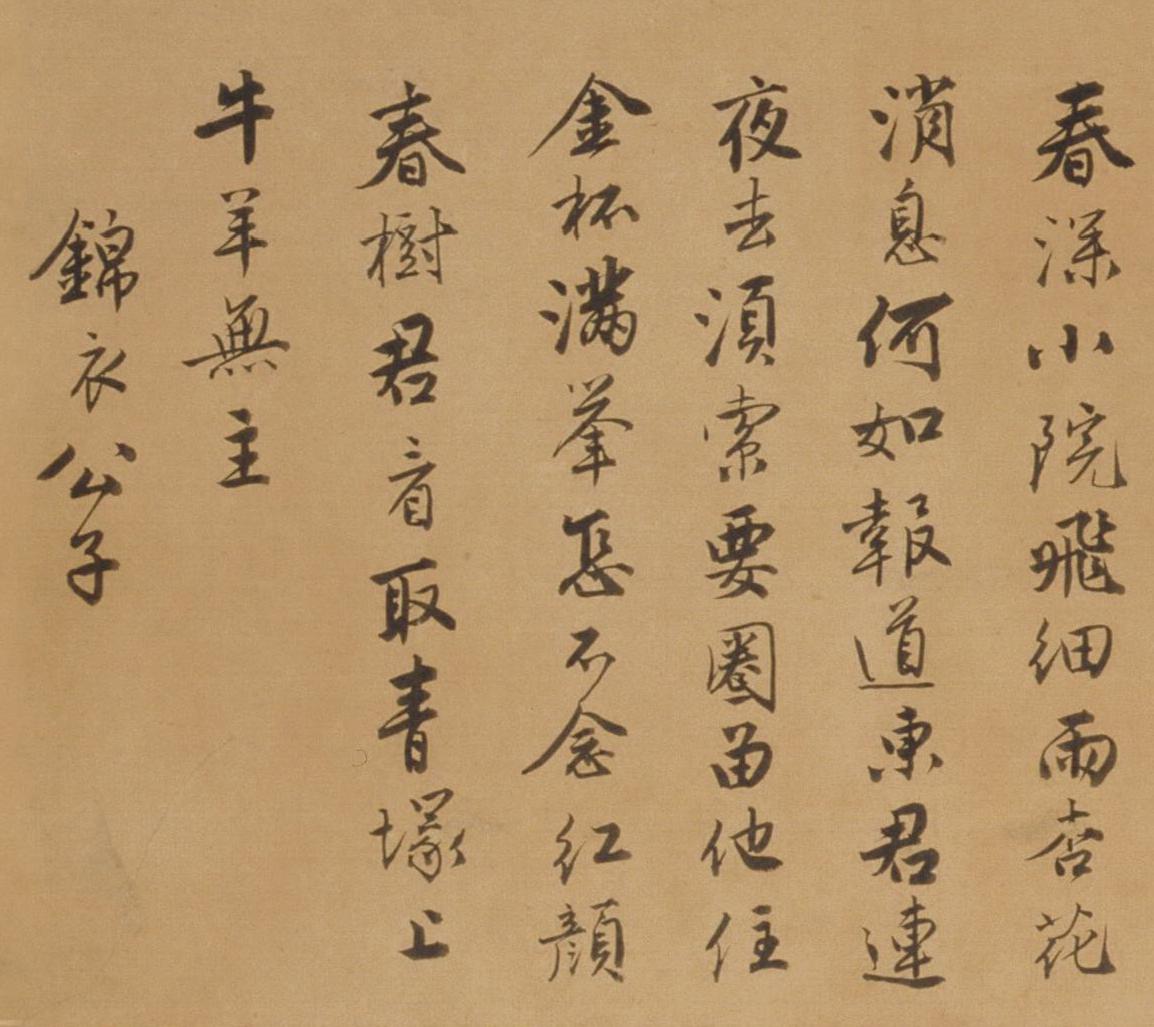 春深小院飛細雨杏花
消息何如報道東君連
夜去須索要圈留他住
金杯滿举怎不念紅顔
春樹君看取青塚上
牛羊無主
錦衣公子